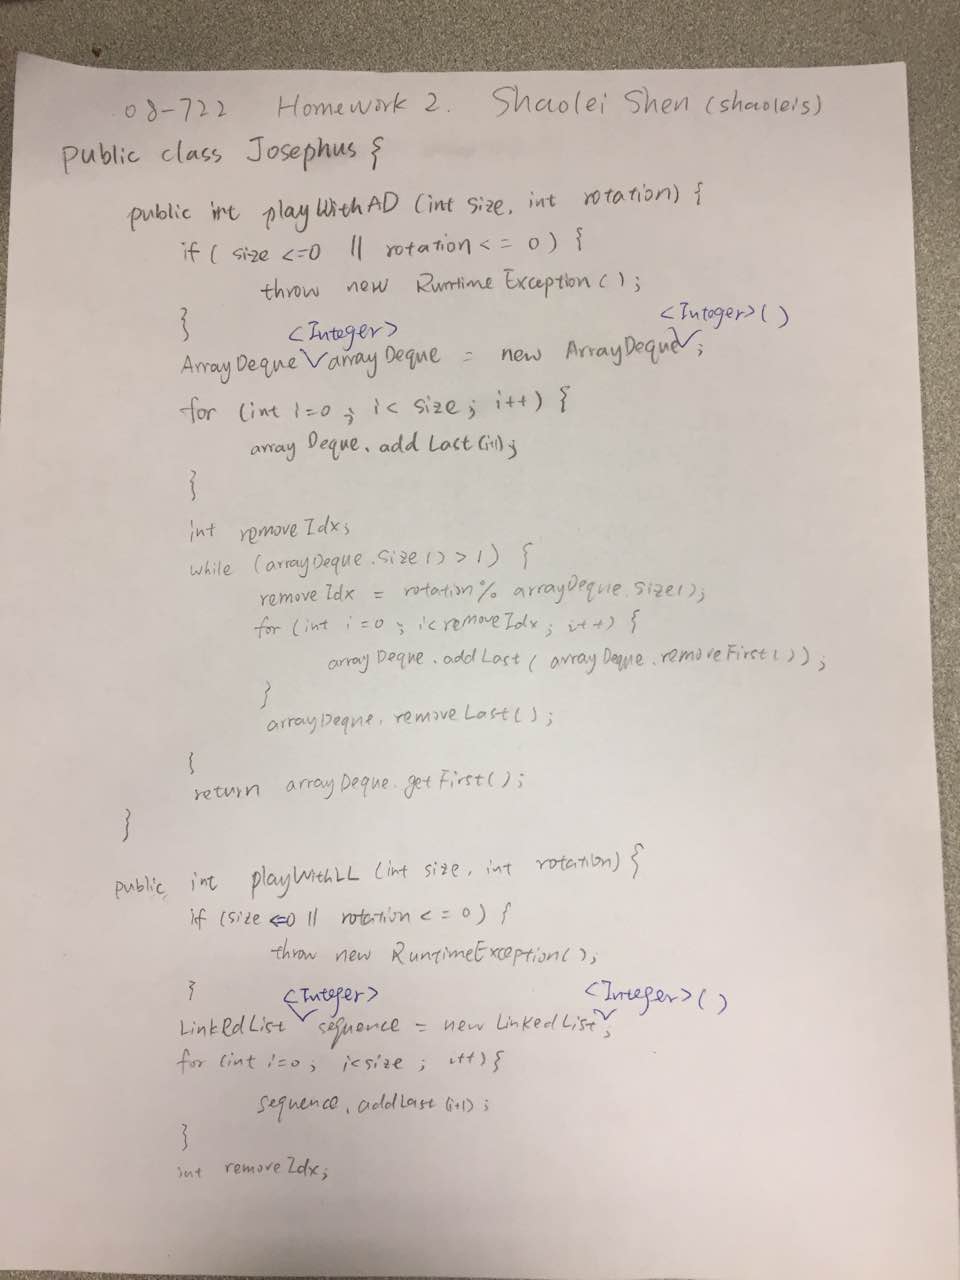 08-722 Homework 2. Shaolei Shen (shaoleis)
public class Josephus {
public int playWithAD (int size, int rotation) {
if ( size <=0 || rotation <= 0) {
throw new RuntimeException();
}
<Integer> <Integer>()
ArrayDeque arrayDeque = new ArrayDeque ;
for (int i=0 ; i< size ; i++) {
arrayDeque.addLast(i+1);
}
int removeIdx;
while (arrayDeque.size() > 1) {
removeIdx = rotation % arrayDeque.size();
for (int i=0 ; i<removeIdx ; i++) {
arrayDeque.addLast( arrayDeque.removeFirst());
}
arrayDeque.removeLast();
{
return arrayDeque.getFirst();
}
public int playWithLL (int size, int rotation) {
if (size <=0 || rotation <= 0) {
throw new RuntimeException();
}
<Integer> <Integer>()
LinkedList sequence = new LinkedList ;
for (int i=0 ; i<size ; i++) {
sequence.addLast(i+1);
}
int removeIdx;